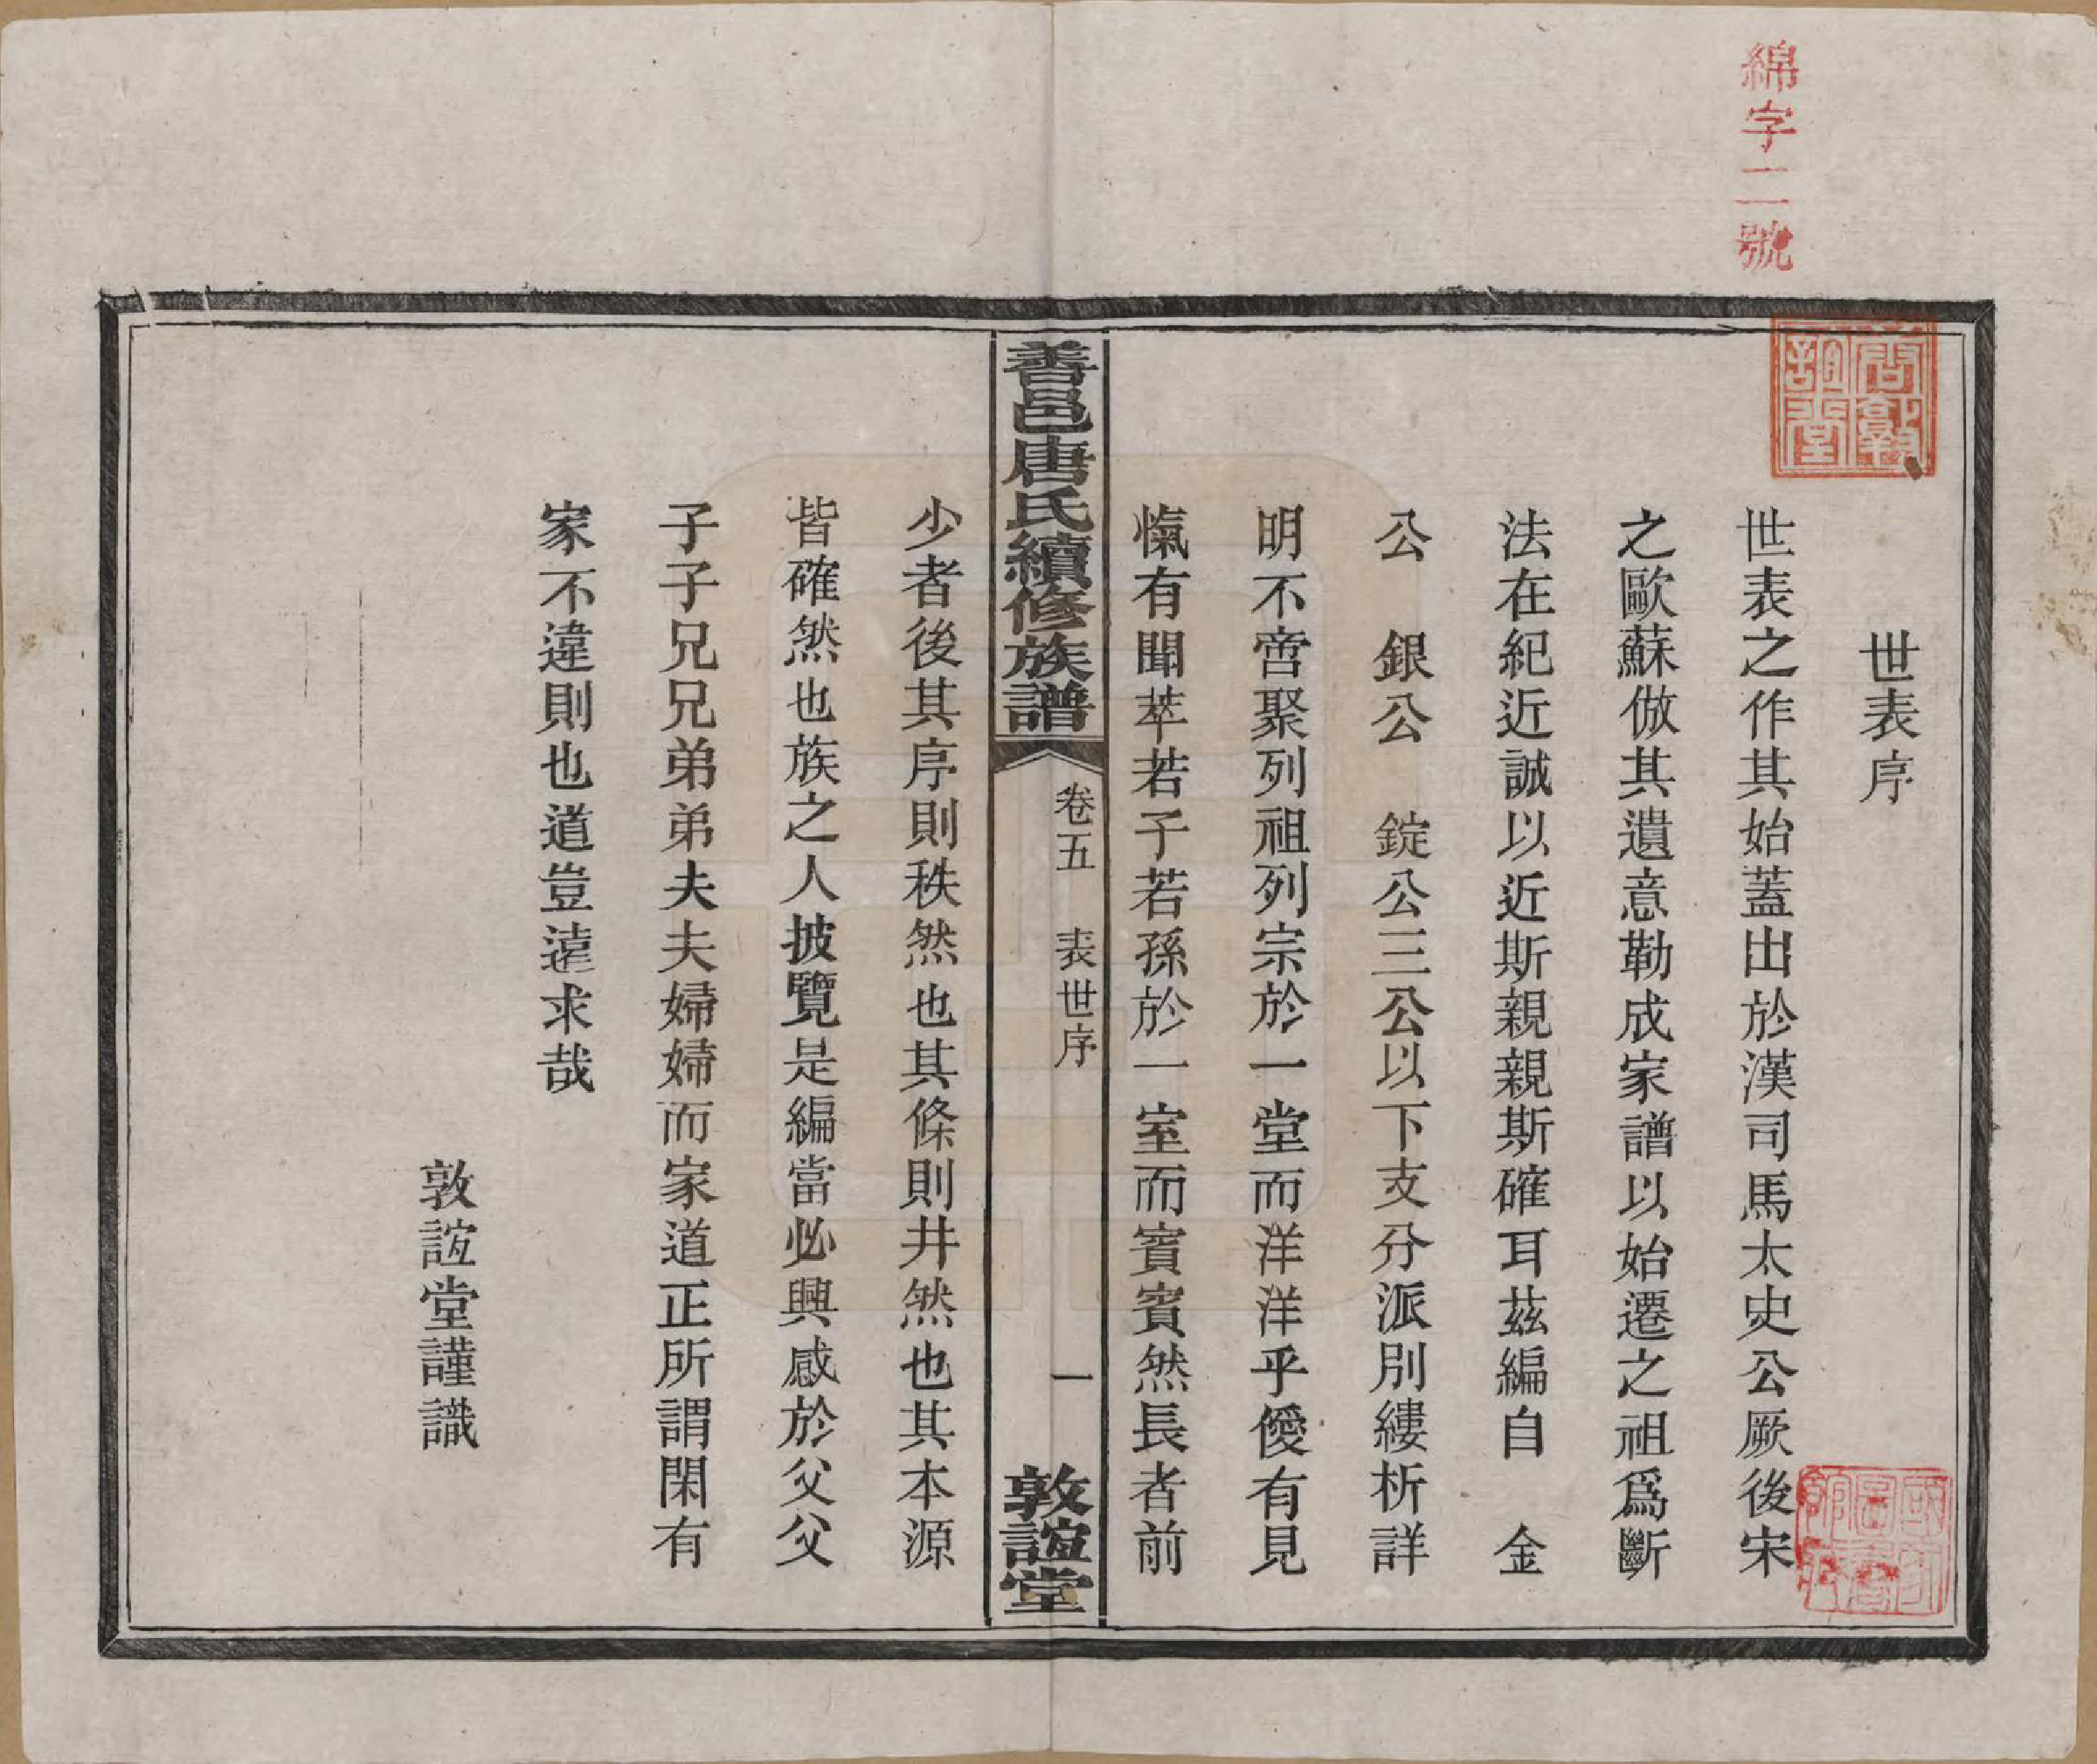 綿字二號
唐敦誼堂
世表序
世表之作其始蓋出於漢司馬太史公厥後宋
之歐蘇倣其遺意勒成家譜以始遷之祖爲斷
法在紀近誠以近斯親親斯確耳茲編自　金
公　銀公　錠公三公以下支分派別縷析詳
明不啻聚列祖列宗於一堂而洋洋乎僾有見
愾有聞萃若子若孫於一室而賓賓然長者前
善邑唐氏續修族譜
卷五　表世序
一
敦誼堂
少者後其序則秩然也其條則井然也其本源
皆確然也族之人披覽是編當必興感於父父
子子兄兄弟弟夫夫婦婦而家道正所謂閑有
家不違則也道豈遠求哉
敦誼堂謹識